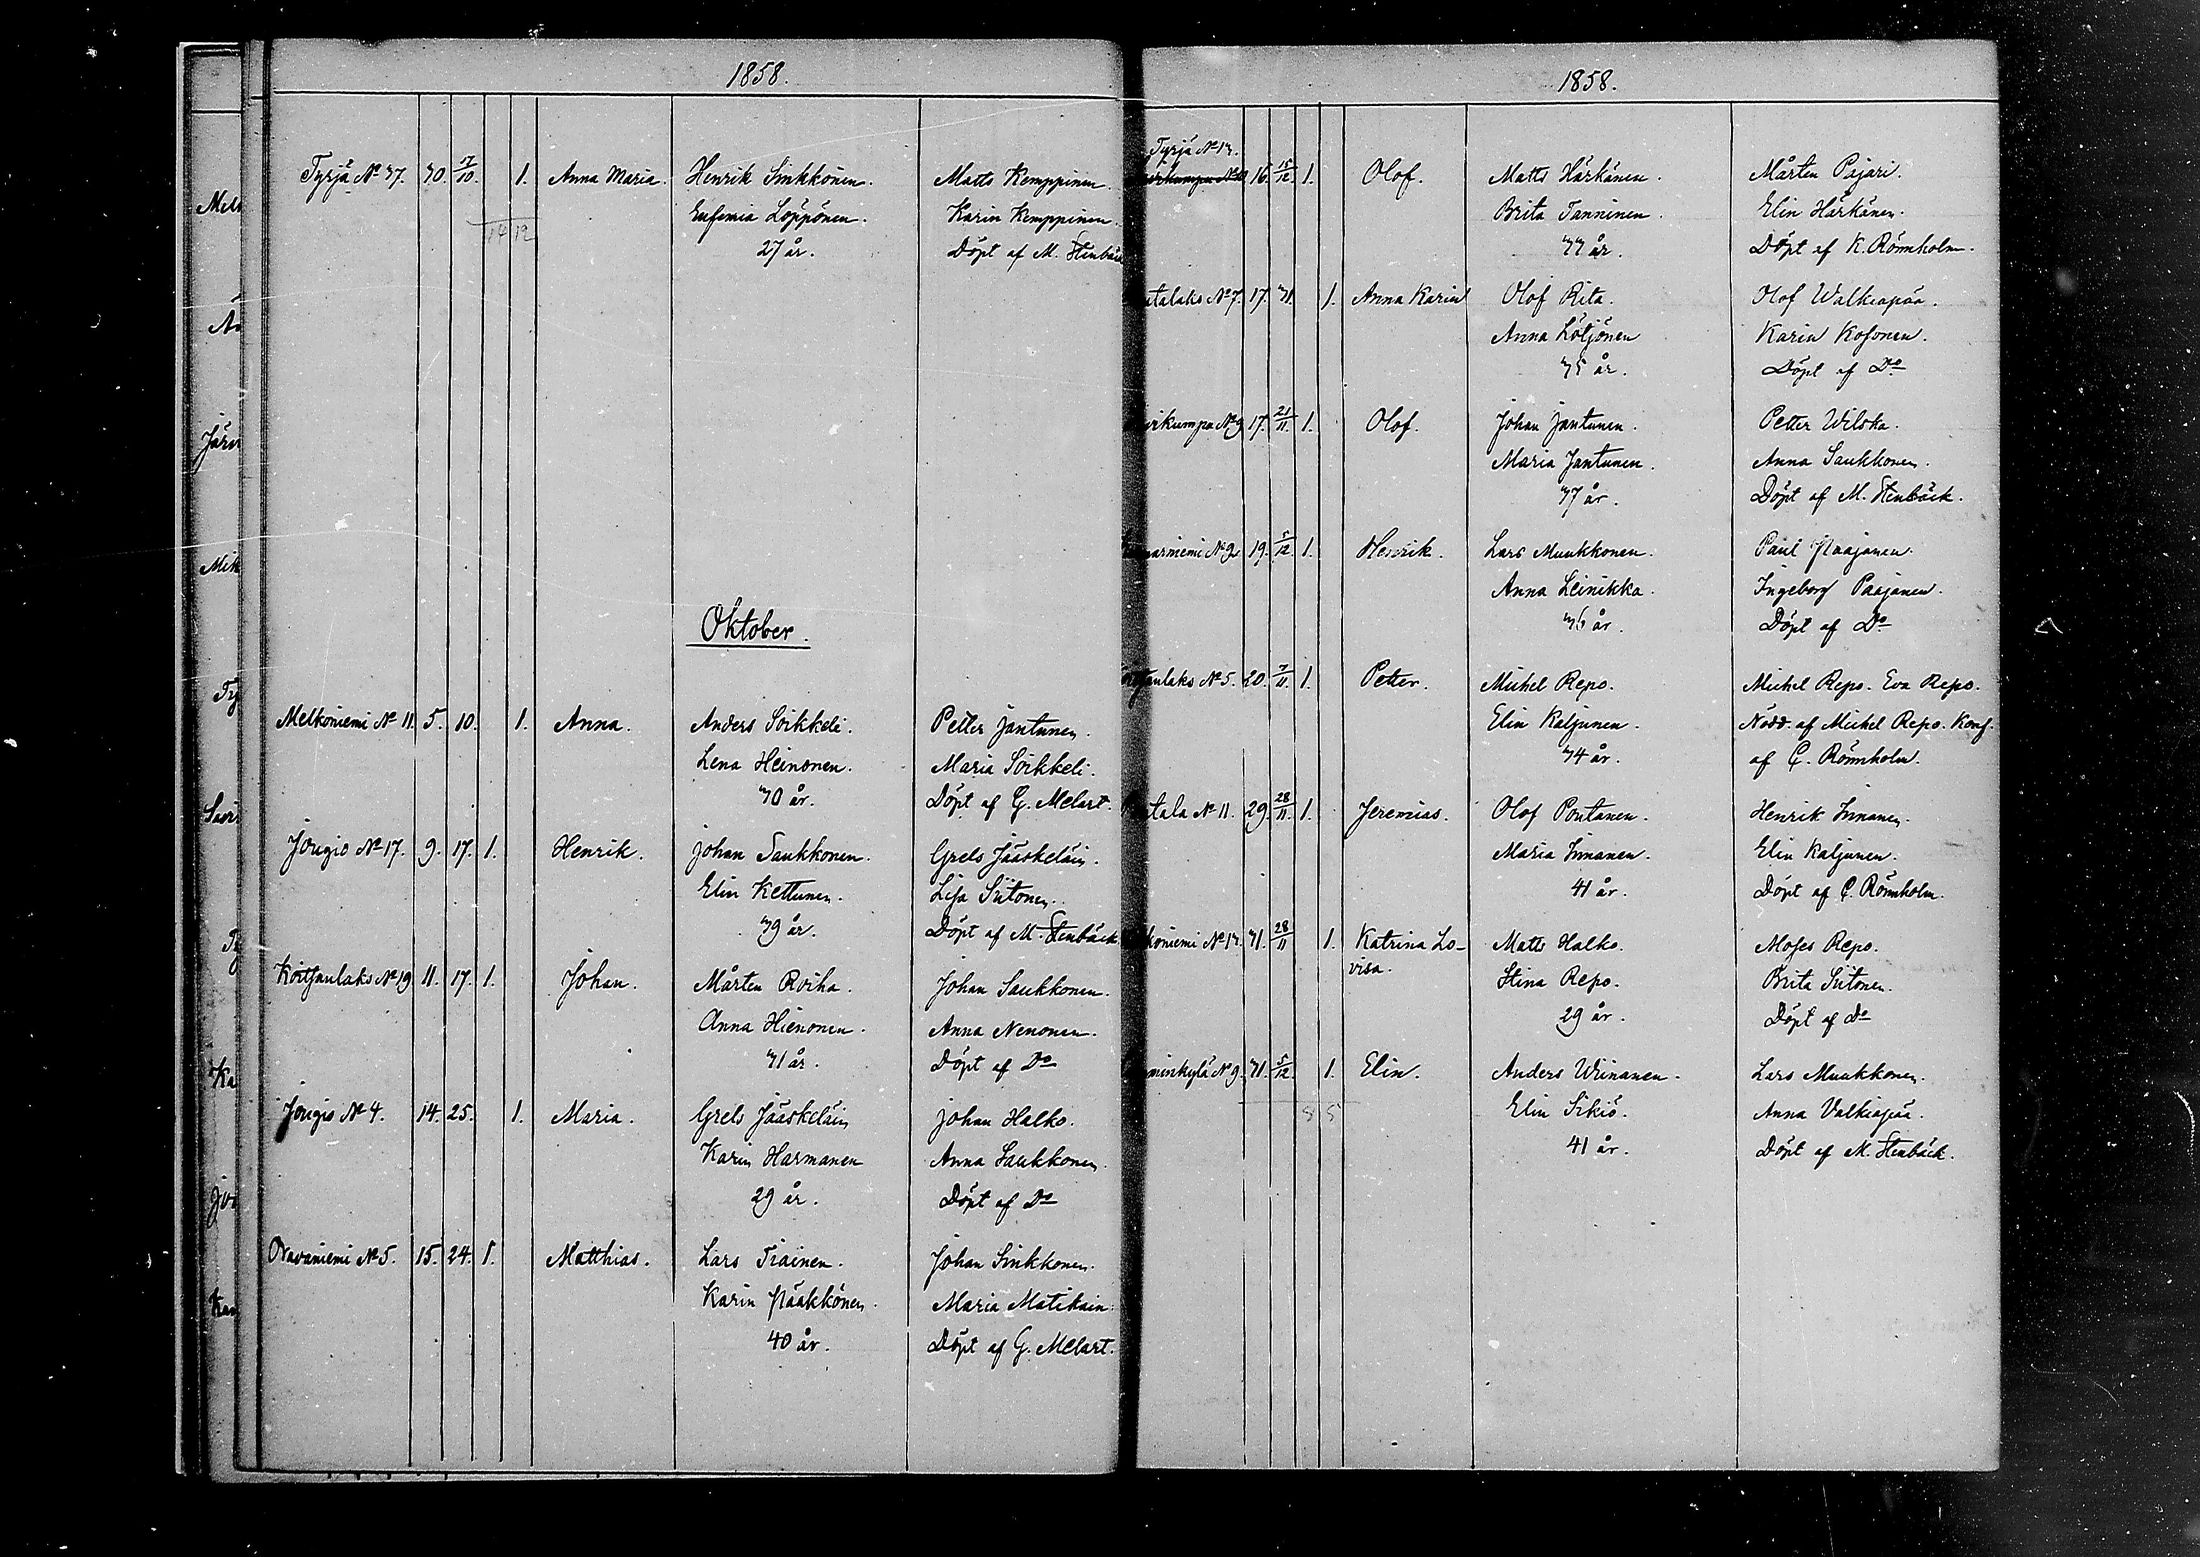 1858.
Tyrjä No 37. 30. 7/10. 1. Anna Maria. Henrik Sinkkonen. Matts Kemppinen.
Eufemia Löppönen. Karin Kemppinen.
14 12
27 år. Döpt af M. Stenbäck
Oktober.
Melkoniemi No 11. 5. 10. 1. Anna. Anders Soikkeli. Petter Jantunen.
Lena Heinonen. Maria Soikkeli.
30 år. Döpt af G. Melart.
Jougio No 17. 9. 17. 1. Henrik. Johan Saukkonen. Grels Jääskeläin.
Elin Kettunen. Lisa Siitonen.
39 år. Döpt af M. Stenbäck
Koitsanlaks No 19 11. 17. 1. Johan. Mårten Roiha. Johan Saukkonen.
Anna Hienonen. Anna Nenonen.
31 år. Döpt af Do
Jougio No 4. 14. 25. 1. Maria. Grels Jääskeläin Johan Halko.
Karin Harmanen Anna Saukkonen.
29 år. Döpt af Do
Oravaniemi No 5. 15. 24. 1. Matthias. Lars Tiainen. Johan Sinkkonen.
Karin Pääkkönen. Maria Matikain.
40 år. Döpt af G. Melart.
1858.
Tyrjä No 13.
16. 15/12. 1. Olof. Matts Härkönen. Mårten Pajari.
Brita Tanninen. Elin Härkönen.
33 år. Döpt af K. Rönnholm.
No 7. 17. 31. 1. Anna Karin Olof Rita. Olof Walkiapää.
Anna Lötjönen Karin Kosonen.
35 år. Döpt af Do
No 9 17. 21/11. 1. Olof. Johan Jantunen. Petter Wilska.
Maria Jantunen. Anna Saukkonen.
37 år. Döpt af M. Stenbäck.
19. 5/12. 1. Henrik. Lars Muukkonen. Paul Paajanen.
Anna Leinikka. Ingeborg Paajanen.
36 år. Döpt af Do
No 5. 20. 7/11. 1. Petter. Michel Repo. Michel Repo. Eva Repo.
Elin Kaljunen. Nödd. af Michel Repo. Konf.
34 år. af C. Rönnholm.
No 11. 29. 28/11. 1. Jeremias. Olof Pontanen. Henrik Innanen.
Maria Innanen. Elin Kaljunen.
41 år. Döpt af C. Rönnholm.
No 13. 31. 28/11 1. Katrina Lo- Matts Halko. Moses Repo.
visa. Stina Repo. Brita Siitonen.
29 år. Döpt af Do
No 9. 31. 5/12. 1. Elin. Anders Wiinanen. Lars Muukkonen.
8 5 Elin Sikiö. Anna Valkiapää.
41 år. Döpt af M. Stenbäck.